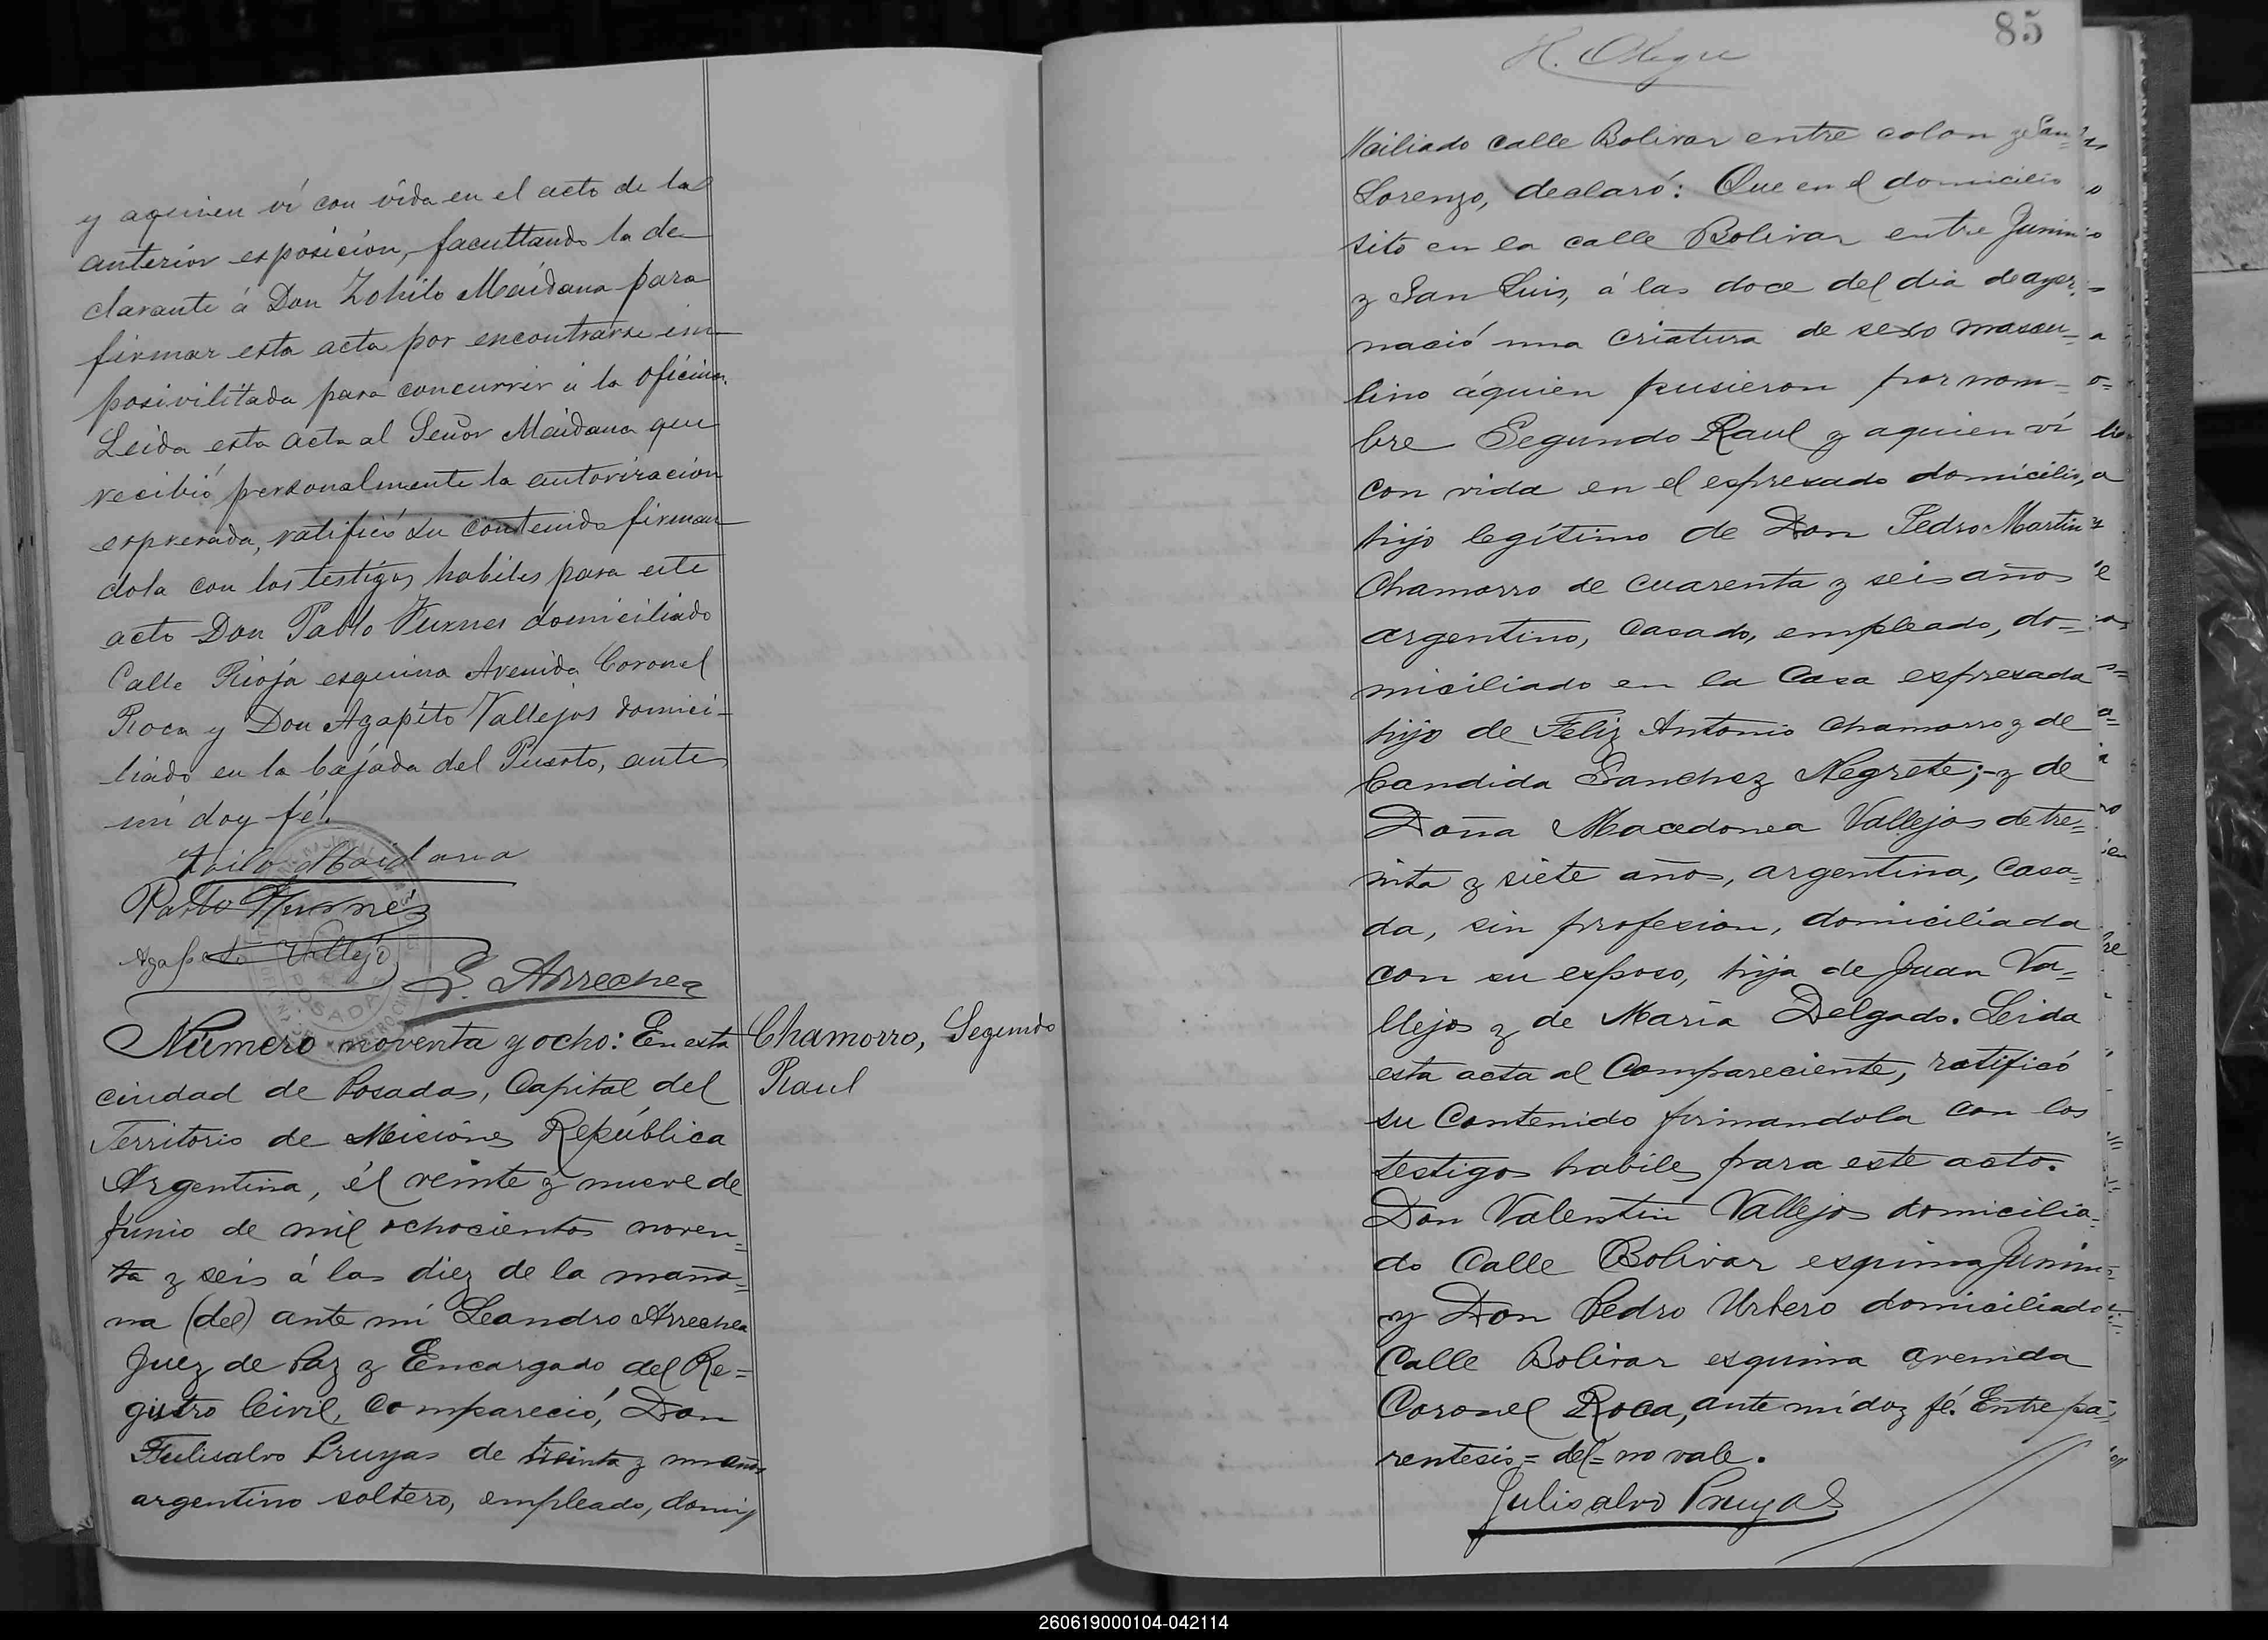 y aquien ví con vida en el acto de la
anterior esposición, facultando la de
clarante á Don Zohilo Maidana para
firmar esta acta por encontrarse im
posivilitada para concurrir a la oficina.
Leida esta acta al Señor Maidana que
recibió personalmente la autorización
espresada, ratificó su contenido firman
dola con los testigos habiles para este
acto Don Pablo Funes domiciliado
Calle Rioja esquina Avenida Coronel
Roca y Don Agapito Vallejos domici-
liado en la bajada del Puerto, ante
mi doy fé.
Zoilo Maidana
Pablo
Agapito Vallejo
L. Arrechea
POSADAS
Número noventa y ocho: En esta
ciudad de Posadas, Capital del
Territorio de Misiones República
Argentina, él veinte y nueve de
Junio de mil ochocientos noven=
ta y seis á las diez de la maña=
na (del) ante mi Leandro Arrechea
Juez de Paz y Encargado del Re=
gistro Civil, compareció, Don
Julisalvo Pruyas de treinta y un años
argentino soltero, empleado, domi
Chamorro, Segundo
Raul
85
H. Alegre
ciliado calle Bolivar entre colon y San=
Lorenzo, declaró: Que en el domicilio
sito en la calle Bolivar entre Junin
y San Luis, á las doce del dia de ayer
nació una criatura de sexo mascu=
lino áquien pusieron por nom=
bre Segundo Raul y aquien ví
con vida en el espresado domicilio,
hijo legítimo de Don Pedro Martin
Chamorro de cuarenta y seis años
argentino, casado, empleado, do=
miciliado en la casa espresada
hijo de Feliz Antonio Chamorro y de
Candida Sanchez Negrete;-y de
Doña Macedonea Vallejos de tre=
inta y siete años, argentina, casa=
da, sin profesion, domiciliada
con su esposo, hija de Juan Va=
llejos y de María Delgado. Leida
esta acta al Compareciente, ratificó
su Contenido firmandola con los
testigos habiles para este acto.
Don Valentin Vallejos domicilia=
do Calle Bolivar esquina Junin
y Don Pedro Urbero domiciliado
Calle Bolivar esquina avenida
Coronel Roca, ante mí doy fé. Entre pa=
rentesis = del = no vale.
Julisalvo Pruyas
260619000104-042114